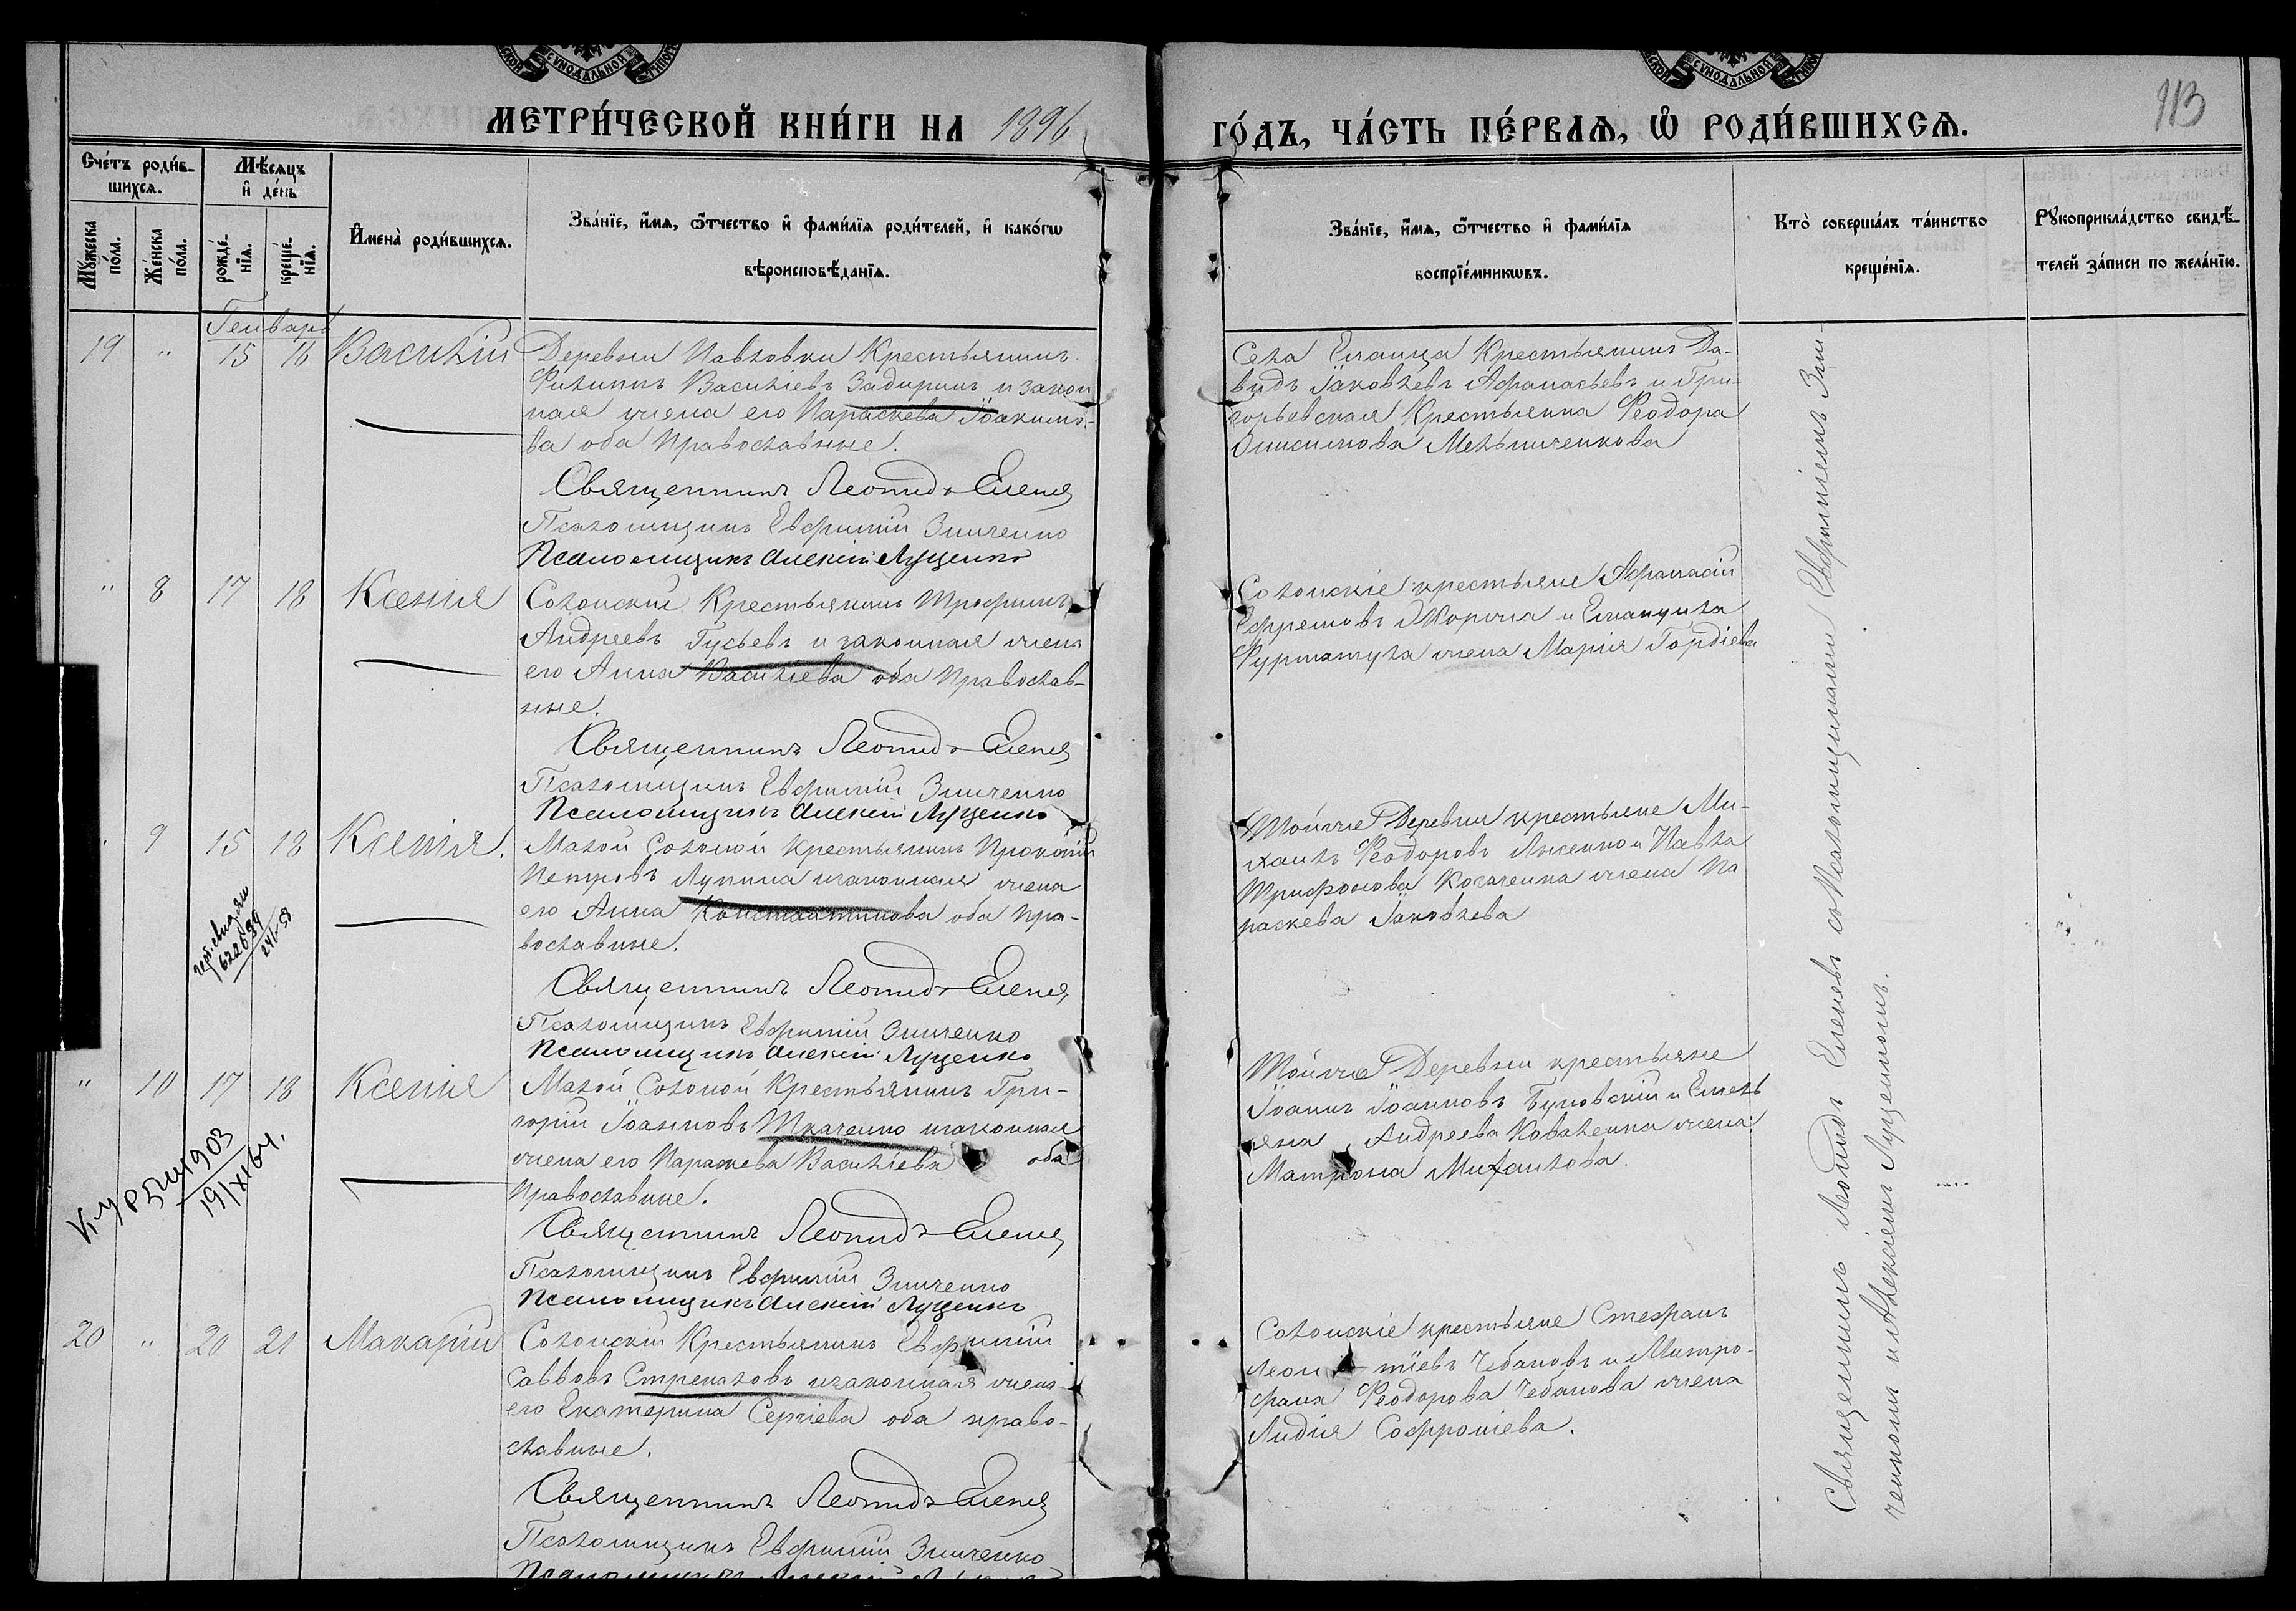 СУНОДАЛЬНОЙ
СУНОДАЛЬНОЙ
113
МЕТРИ́ЧЕСКОЙ КНИ́ГИ НА 1896
ГО́ДЪ, ЧА́СТЬ ПЕ́РВАЯ, Ѡ РОДИ́ВШИХСЯ.
Сче́тъ роди́в-
шихся.
Мѣ́сяцъ
и҆ де́нь
Му́жеска
по́ла.
Же́нска
по́ла.
рожде́-
нїя.
креще́-
нїя.
И҆мена̀ роди́вшихся.
Зва́нїе, и҆́мя, ѻ҆́тчество и҆ фами́лїя роди́телей, и҆ како́гѡ
вѣроисповѣ́данїя.
Зва́нїе, и҆́мя, ѻ҆́тчество и҆ фами́лїя
воспрїе́мникѡвъ.
Кто̀ соверша́лъ та́инство
креще́нїя.
Рꙋкоприкла́дство свидѣ́-
телей за́писи по жела́нїю.
Генварь
19 " 15 16 Василій
Деревни Павловки Крестьянинъ
Филиппъ Василіевъ Задиринъ и закон
ная жена его Параскева Іоакимо-
ва оба Православные.
Священникъ Леонид Еленев
Псаломщикъ Евфимій Зинченко
Псаломщикъ Алексій Луценко
Села Еланца Крестьянинъ Да-
видъ Іаковлевъ Афанасьевъ и Гри-
горьевская Крестьянка Феодора
Онисимова Мельниченкова
" 8 17 18 Ксенія
Солонскій Крестьянинъ Трофимъ
Андреевъ Гусьевъ и законная жена
его Анна Василіева оба Православ-
ные.
Священникъ Леонид Еленев
Псаломщикъ Евфимій Зинченко
Псаломщикъ Алексій Луценко
Солонскіе крестьяне Афанасій
Ефремовъ Жорина и Емануила
Фурмагула жена Марія Гордіева
9 15 18 Ксенія.
Малой Солоной Крестьянинъ Прокопій
Петровъ Лупина изаконная жена
его Анна Константинова оба Пра-
вославные.
Священникъ Леонид Еленев
Псаломщикъ Евфимій Зинченко
Псаломщикъ Алексій Луценко
Той же Деревни крестьяне Ми-
хаилъ Феодоровъ Лысенко и Павла
Трифонова Когаченка жена Па
раскева Іаковлева
622689
" 10 17 18 Ксенія
Малой Солоной Крестьянинъ Гри-
горій Іоанновъ Ткаченко изаконная
жена его Параскева Василіева оба
Православные.
Священникъ Леонид Еленев
Псаломщикъ Евфимій Зинченко
Псаломщикъ Алексій Луценко
Той же Деревни крестьяне
Іоаннъ Іоанновъ Буновскій и Емель
яна Андреева Коваленка жена
Матрона Михаилова.
19/XI 64 г.
20 " 20 21 Макарій
Солонскій Крестьянинъ Евфимій
Саввовъ Стрекаловъ изаконная жена
его Екатерина Сергіева оба право-
славные.
Священникъ Леонид Еленев
Псаломщикъ Евфимій Зинченко
Псаломщикъ Алексій
Солонскіе крестьяне Стефанъ
Леон тіевъ Чебановъ и Митро-
фана Феодорова Чебанова жена
Лидія Софроніева.
Священникъ Леонидъ Еленевъ съ Псаломщиками Евфиміемъ Зин-
ченкомъ и Алексіемъ Луценкомъ.